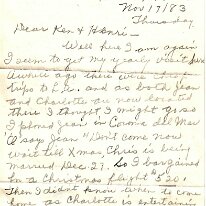 Nov 17/83
Thursday
Dear Ken & Henri -
Well here I am again
I seem to get my yearly visit here
Awhile ago there were cheap
trips to B.C. and as both Jean
and Charlotte are now located
there I thought I might go so
I phoned Jean in Comox. all she
say Jean "Don't come now
wait till Xmas, Chris is being
married Dec 27. So I bargained
for a Christmas flight $520.
Then I didnt know when to come
home as Charlotte is entertaining